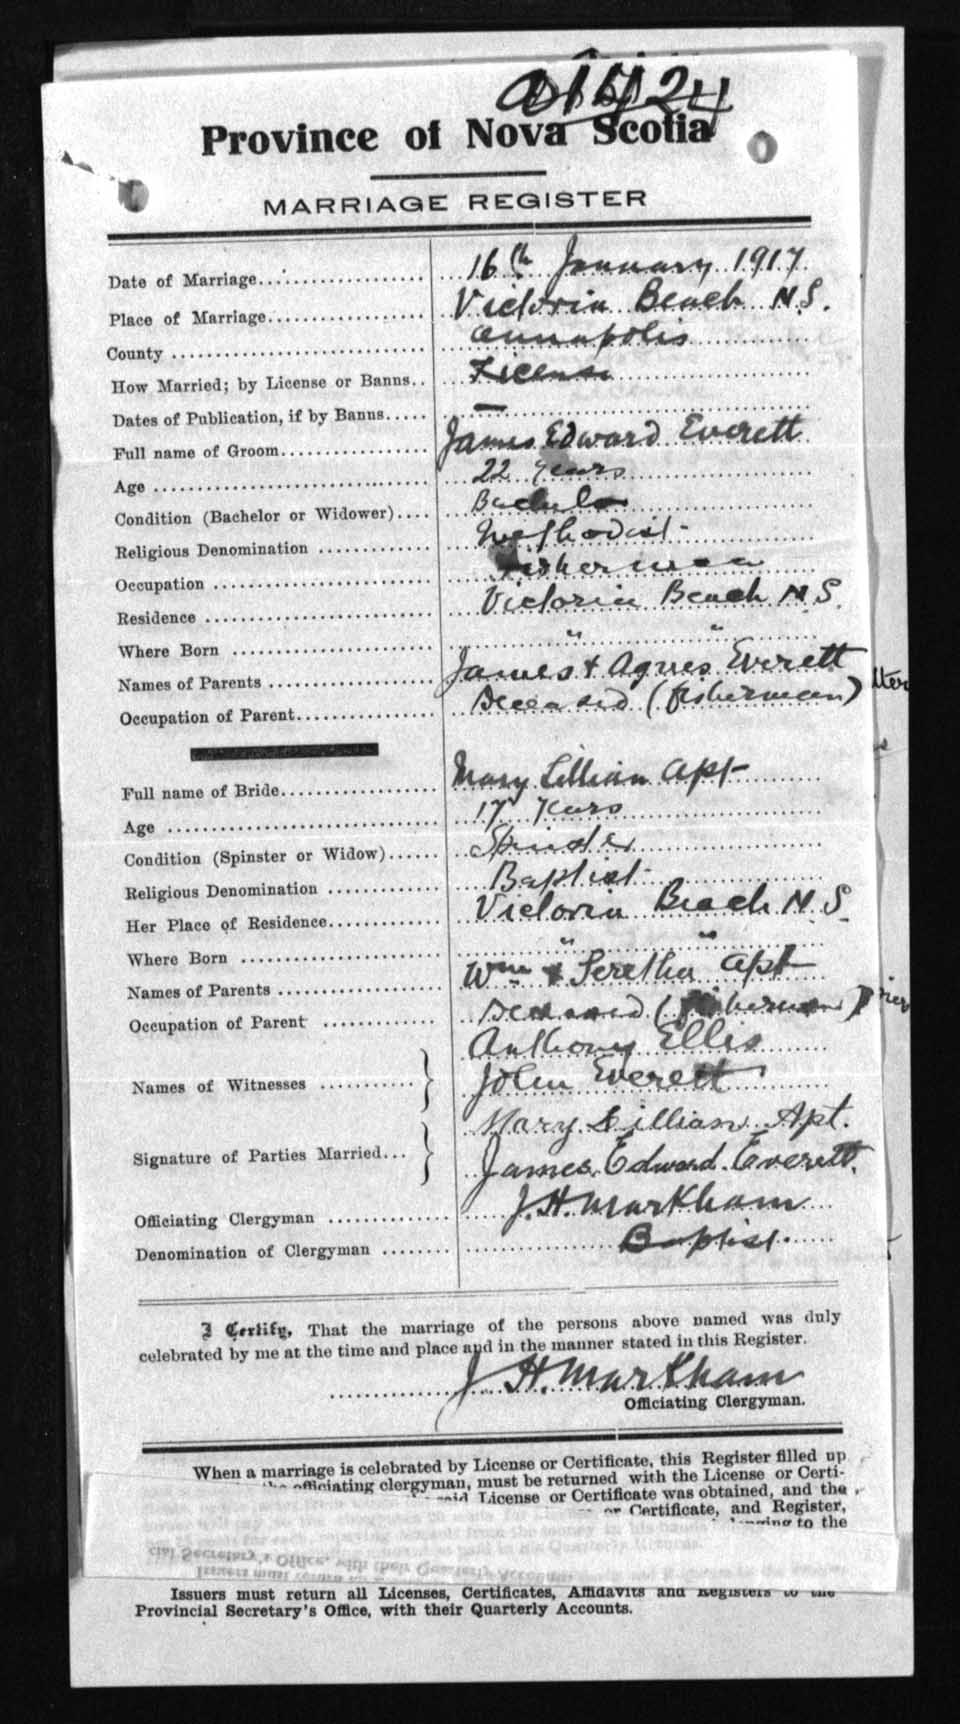 Province of Nova Scotia
MARRIAGE REGISTER
Date of Marriage 16th January 1917
Place of Marriage Victoria Beach N.S.
County Annapolis
How Married; by License or Banns License
Dates of Publication, if by Banns —
Full name of Groom James Edward Everett
Age 22 years
Condition (Bachelor or Widower) Bachelor
Religious Denomination Methodist
Occupation Fisherman
Residence Victoria Beach N.S.
Where Born " "
Names of Parents James & Agnes Everett
Occupation of Parent Deceased (fisherman)
Full name of Bride Mary Lillian Apt
Age 17 years
Condition (Spinster or Widow) Spinster
Religious Denomination Baptist
Her Place of Residence Victoria Beach N.S.
Where Born " "
Names of Parents Wm & Seretha Apt
Occupation of Parent Deceased (fisherman)
Names of Witnesses } Anthony Ellis
John Everett
Signature of Parties Married } Mary Lillian Apt.
James Edward Everett.
Officiating Clergyman J. H. Markham
Denomination of Clergyman Baptist.
I Certify, That the marriage of the persons above named was duly
celebrated by me at the time and place and in the manner stated in this Register.
J. H. Markham
Officiating Clergyman.
When a marriage is celebrated by License or Certificate, this Register filled up
officiating clergyman, must be returned with the License or Certi-
said License or Certificate was obtained, and the
or Certificate, and Register,
to the
cial Secretary's Office, with their Quarterly Accounts.
Issuers must return all Licenses, Certificates, Affidavits and Registers to the
Provincial Secretary's Office, with their Quarterly Accounts.